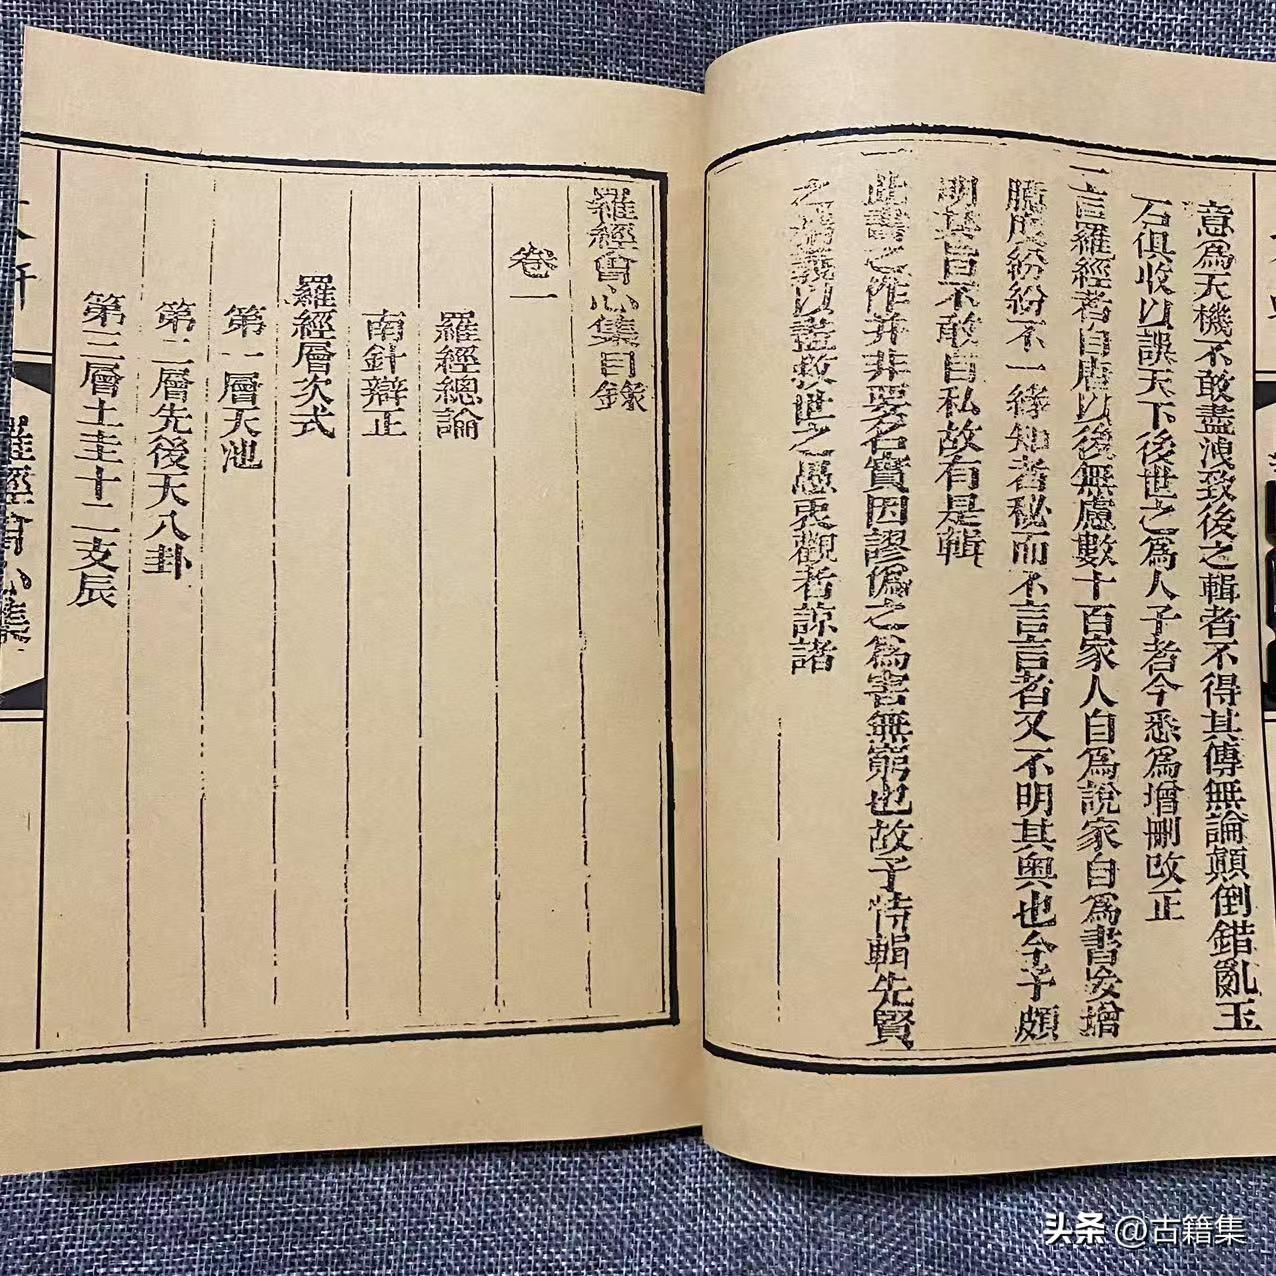 意為天機不敢盡洩致後之輯者不得其傳無論顛倒錯亂玉
石俱收以誤天下後世之為人子者今悉為增刪改正
一言羅經者自唐以後無慮數十百家人自為說家自為書妄增
臆度紛紛不一緣知者秘而不言言者又不明其奧也今予頗
明其旨不敢自私故有是輯
一此書之作并非要名實因謬偽之為害無窮也故予特輯先賢
之精義以證救世之愚衷觀者諒諸
羅經會心集目錄
卷一
羅經總論
南針辯正
羅經層次式
第一層天池
第二層先後天八卦
第三層土圭十二支辰
羅經會心集
头条 @古籍集